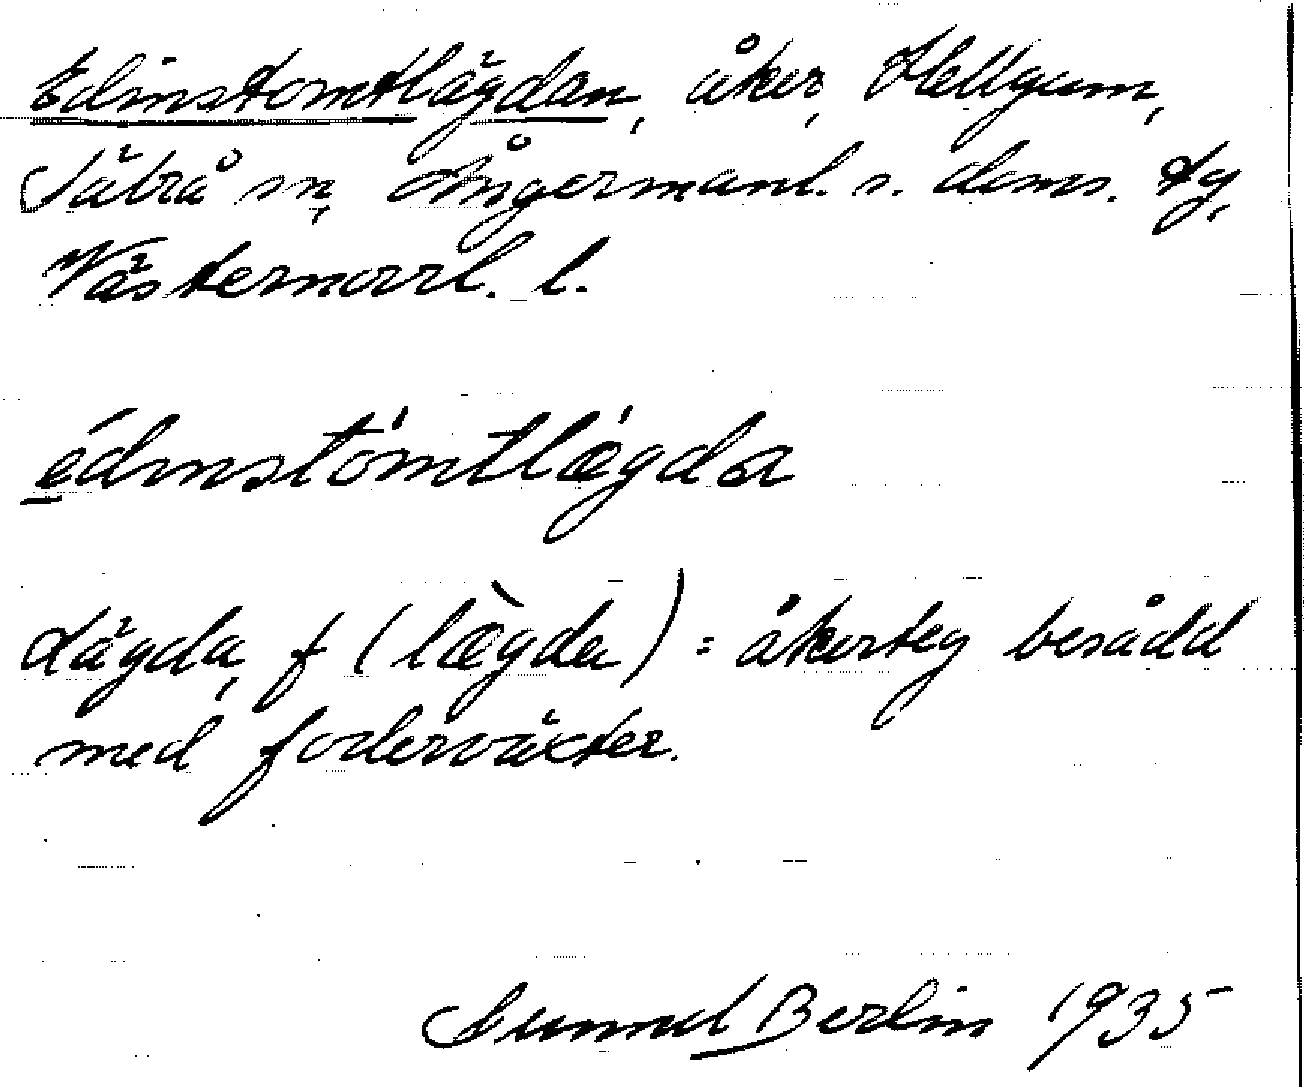 Edinstomtlägdan, åker, Hellgum,
Säbrå sn, Ångermanl. s. doms. tg,
Västernorrl. l.
édinstòmtlægda
Lägda, f (lægda) = åkerteg besådd
med foderväxter.
Gunnel Berlin 1935